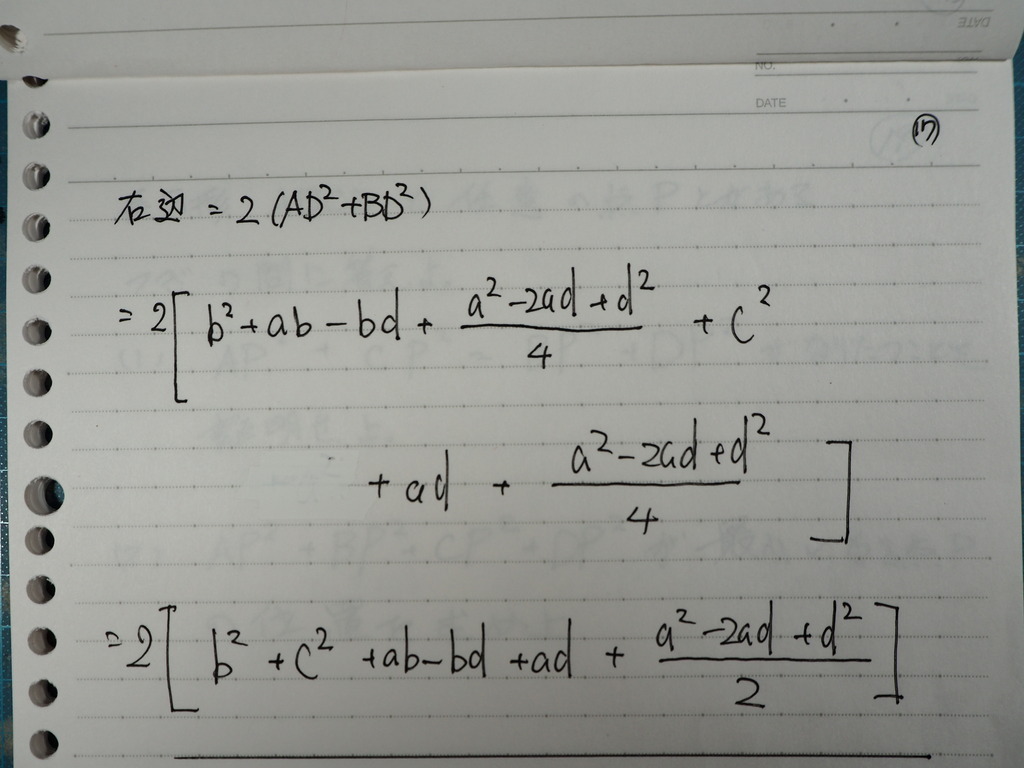 NO.
DATE
⑰
右辺 = 2 (AD²+BD²)
= 2[ b² + ab − bd + (a² − 2ad + d²)/4 + c²
+ ad + (a² − 2ad + d²)/4 ]
= 2[ b² + c² + ab − bd + ad + (a² − 2ad + d²)/2 ]